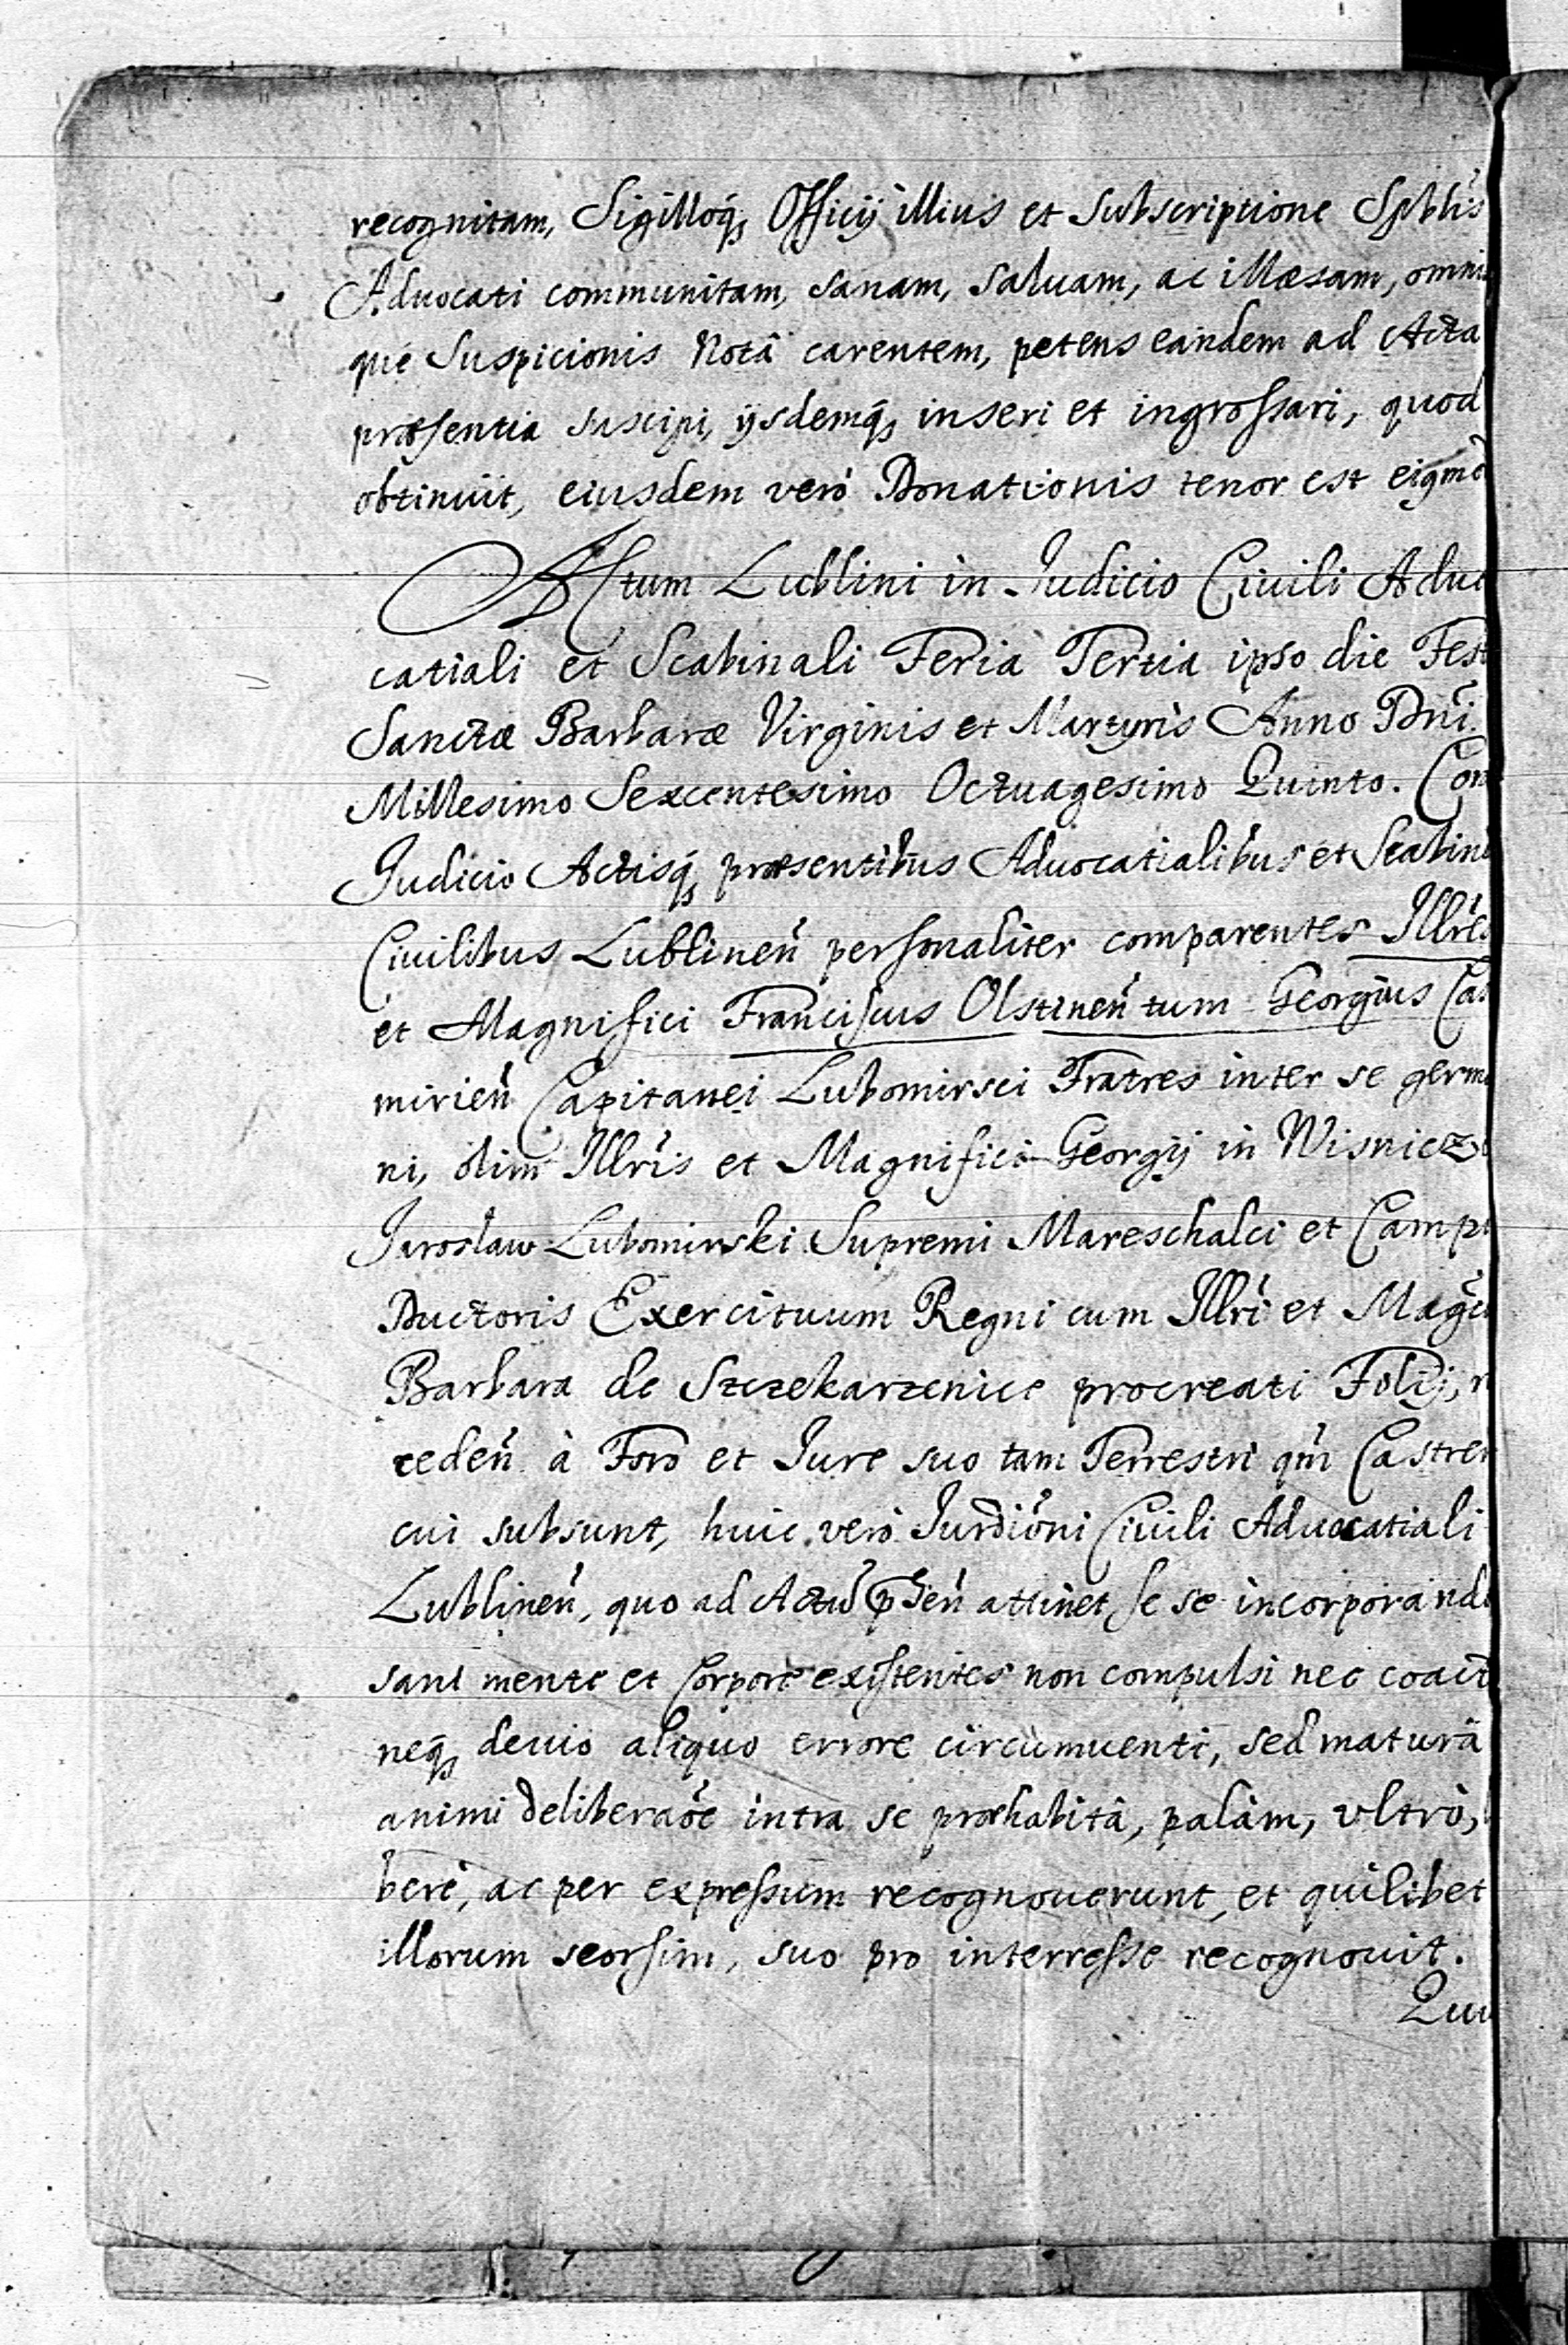 recognitam, Sigilloq́ꝫ Officÿ illius et Subscriptione Spblis
Aduocati communitam, sanam, saluam, ac illæsam, omni
que Suspicionis Notâ carentem, petens eandem ad Acta
præsentia suscipi, ÿsdemq́ꝫ inseri et ingrossari, quod
obtinuit, eiusdem verò Donationis tenor est eigmõ
Actum Lublini in Iudicio Ciuili Aduo
catiali et Scabinali Feria Tertia ipso die Fest
Sanctæ Barbaræ Virginis et Martyris Anno Dni.
Millesimo Sexcentesimo Octuagesimo Quinto. Com
Iudicio Actisq́ꝫ præsentibus Aduocatialibus et Scabin
Ciuilibus Lublineñ personaliter comparentes Illres
et Magnifici Franciscus Olstineñ tum Georgius Cas
mirieñ Capitanei Lubomirsci Fratres inter se germa
ni, olim Illris et Magnifici Georgÿ in Wisnicz
Iarosław Lubomirski Supremi Mareschalci et Camp
Ductoris Exercituum Regni cum Illri et Magc
Barbara de Szczekarzenice procreati Folÿ, r
cedeñ à Foro et Iure suo tam Terrestri qm̃ Castren
cui subsunt, huic verò Iurdioni Ciuili Aduocatiali
Lublineñ, quo ad Actũ pñseñ attinet se se incorporand
sani mente et Corpore existentes non compulsi nec coact
neq́ꝫ deuio aliquo errore circumuenti, sed maturâ
animi deliberaõe intra se præhabitâ, palàm, vltrò,
berè, ac per expressum recognouerunt, et quilibet
illorum seorsim, suo pro interresse recognouit.
Qui